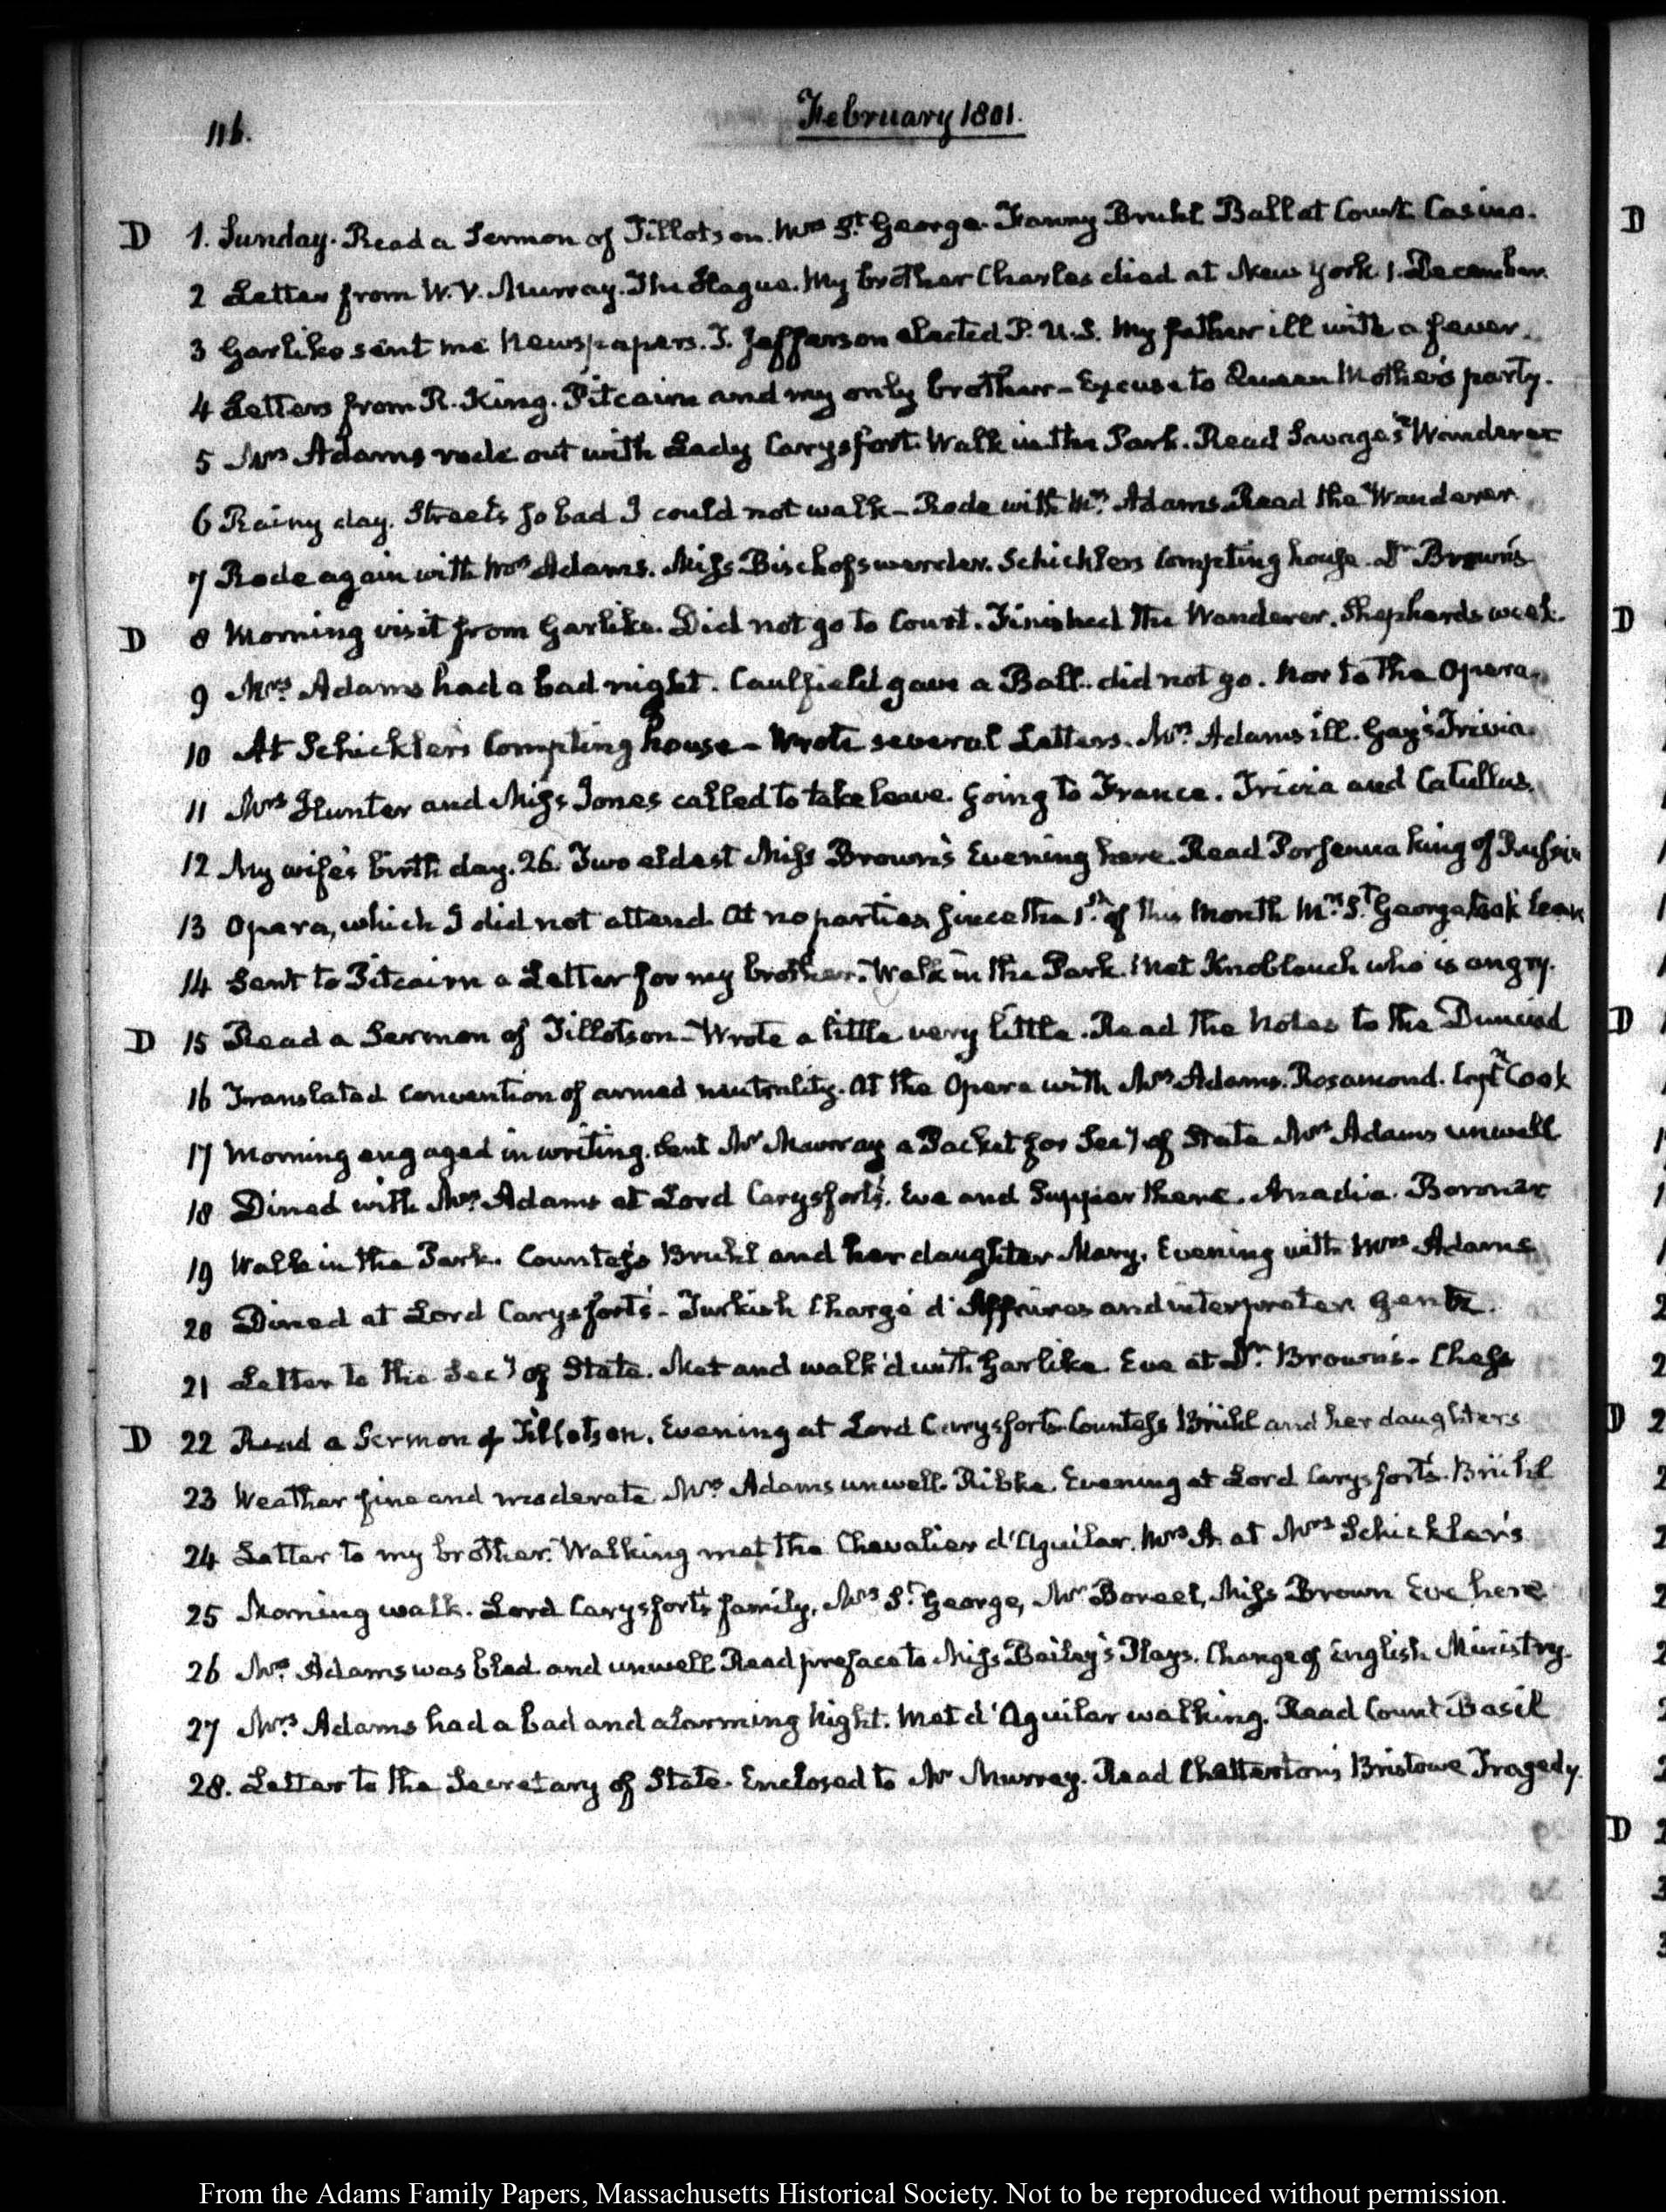 116.
February 1801.
D 1. Sunday. Read a Sermon of Tillotson. Mrs St. George. Fanny Bruhl Ball at Court Casino.
2 Letter from W. V. Murray. The Hague. My brother Charles died at New York 1. December.
3 Garlike sent me Newspapers. T. Jefferson elected P. U.S. My father ill with a fever.
4 Letters from R. King. Pitcairn and my only brother - Excuse to Queen Mother's party.
5 Mrs Adams rode out with Lady Carysfort. Walk in the Park. Read Savage's Wanderer
6 Rainy day. Streets so bad I could not walk - Rode with Mrs. Adams. Read the Wanderer.
7 Rode again with Mrs Adams. Miss Bischofswerder. Schicklers Compting house. Dr Brown's
D 8 Morning visit from Garlike. Did not go to Court. Finished the Wanderer. Shepherds week.
9 Mrs. Adams had a bad night. Caulfield gave a Ball. did not go. Nor to the Opera.
10 At Schickler's Compting house - Wrote several Letters. Mrs. Adams ill. Gay's Trivia.
11 Mrs Hunter and Miss Jones called to take leave. Going to France. Trivia and Catullus.
12 My wife's birth day. 26. Two eldest Miss Brown's Evening here. Read Porsenna king of Russia
13 Opera, which I did not attend. At no parties since the 1st. of this Month Mrs. St. George took leave
14 Sent to Pitcairn a Letter for my brother. Walk in the Park. Met Knoblauch who is angry.
D 15 Read a Sermon of Tillotson - Wrote a little very little. Read the Notes to the Dunciad
16 Translated Convention of armed neutrality. At the Opera with Mrs Adams. Rosamond. Captn Cook
17 Morning engaged in writing. Sent Mr Murray a Packet for Secy of State Mrs Adams unwell
18 Dined with Mrs. Adams at Lord Carysfort's. Eve and Supper there. Anadia. Boronar
19 Walk in the Park. Countess Bruhl and her daughter Mary. Evening with Mrs Adams
20 Dined at Lord Carysfort's - Turkish Chargé d'Affaires and interpreter. Gentz.
21 Letter to the Secy of State. Met and walk'd with Garlike. Eve at Dr. Brown's - Chess
D 22 Read a Sermon of Tillotson. Evening at Lord Carysfort's Countess Brühl and her daughters
23 Weather fine and moderate Mrs. Adams unwell. Ribke. Evening at Lord Carysfort's. Brühl
24 Letter to my brother. Walking met the Chevalier d'Aguilar. Mrs A. at Mrs Schickler's
25 Morning walk. Lord Carysfort's family, Mrs St. George, Mr Boreel, Miss Brown Eve here
26 Mrs. Adams was bled and unwell Read preface to Miss Bailey's Plays. Change of English Ministry.
27 Mrs. Adams had a bad and alarming Night. Met d'Aguilar walking. Read Count Basil
28. Letter to the Secretary of State. Enclosed to Mr Murray. Read Chatterton's Bristowe Tragedy.
From the Adams Family Papers, Massachusetts Historical Society. Not to be reproduced without permission.